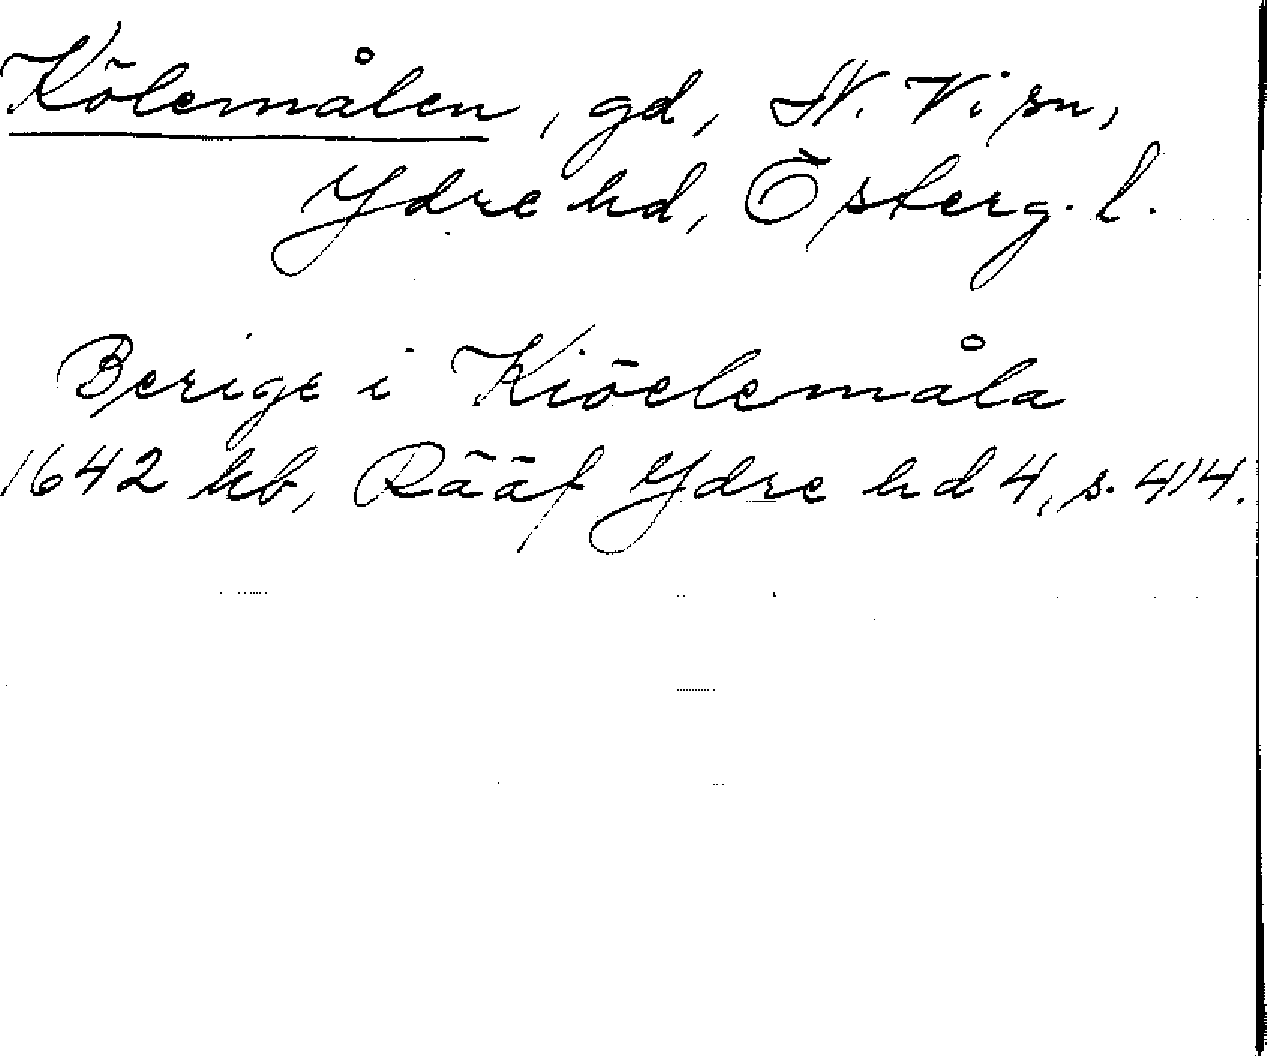 Kölemålen, gd, N. Vi sn,
Ydre hd, Österg. l.
Berige i Kiöelemåla
1642 hb, Rääf Ydre hd 4, s. 414.